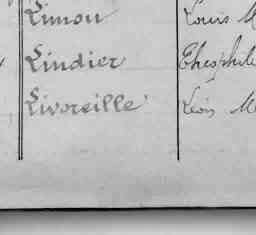 Limou Louis M
Lindier Theophile
Livoreille Léon M